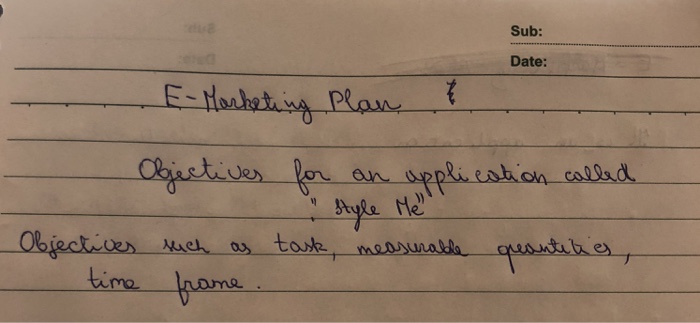 Sub:
Date:
E-Marketing Plan
Objectives for an application called
"Style Me"
Objectives such as task, measurable quantities,
time frame.